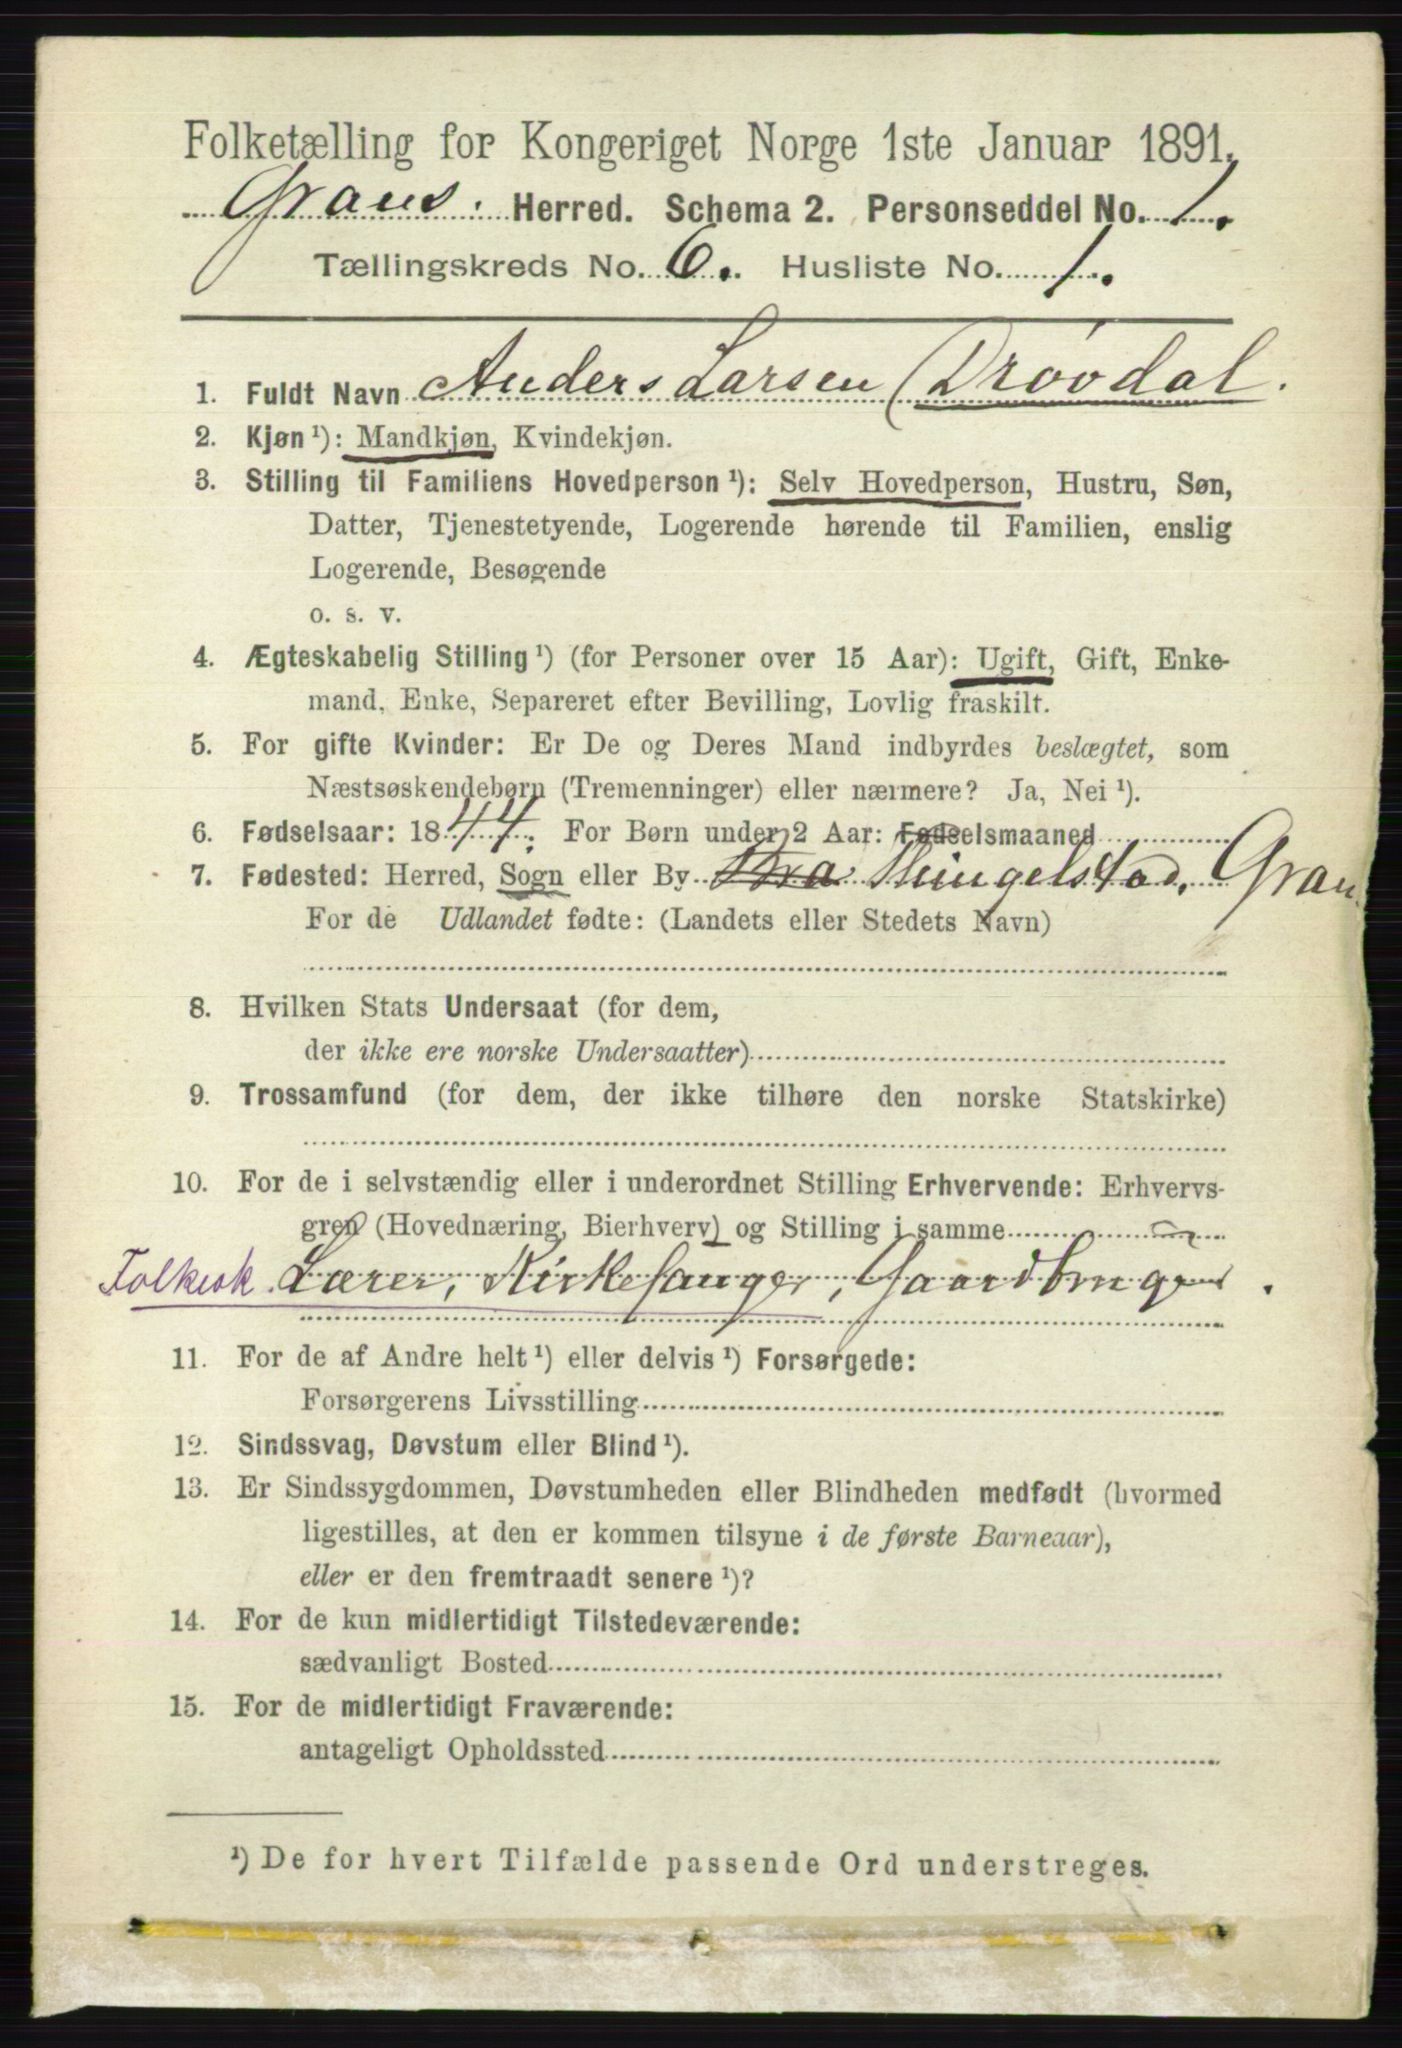 Folketælling for Kongeriget Norge 1ste Januar 1891.
Grans. Herred. Schema 2. Personseddel No. 1.
Tællingskreds No. 6. Husliste No. 1.
1. Fuldt Navn Anders Larsen Drövdal.
2. Kjøn ¹): Mandkjøn, Kvindekjøn.
3. Stilling til Familiens Hovedperson ¹): Selv Hovedperson, Hustru, Søn,
Datter, Tjenestetyende, Logerende hørende til Familien, enslig
Logerende, Besøgende
o. s. v.
4. Ægteskabelig Stilling ¹) (for Personer over 15 Aar): Ugift, Gift, Enke-
mand, Enke, Separeret efter Bevilling, Lovlig fraskilt.
5. For gifte Kvinder: Er De og Deres Mand indbyrdes beslægtet, som
Næstsøskendebørn (Tremenninger) eller nærmere? Ja, Nei ¹).
6. Fødselsaar: 1844. For Børn under 2 Aar: Fødselsmaaned
7. Fødested: Herred, Sogn eller By Tingelstad, Gran
For de Udlandet fødte: (Landets eller Stedets Navn)
8. Hvilken Stats Undersaat (for dem,
der ikke ere norske Undersaatter)
9. Trossamfund (for dem, der ikke tilhøre den norske Statskirke)
10. For de i selvstændig eller i underordnet Stilling Erhvervende: Erhvervs-
gren (Hovednæring, Bierhverv) og Stilling i samme
Folkesk. Lærer, Kirkesanger, Gaardbruger.
11. For de af Andre helt ¹) eller delvis ¹) Forsørgede:
Forsørgerens Livsstilling
12. Sindssvag, Døvstum eller Blind ¹).
13. Er Sindssygdommen, Døvstumheden eller Blindheden medfødt (hvormed
ligestilles, at den er kommen tilsyne i de første Barneaar),
eller er den fremtraadt senere ¹)?
14. For de kun midlertidigt Tilstedeværende:
sædvanligt Bosted
15. For de midlertidigt Fraværende:
antageligt Opholdssted
¹) De for hvert Tilfælde passende Ord understreges.